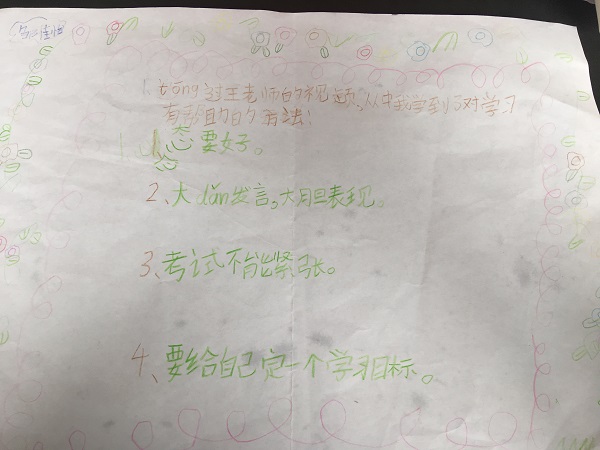 1. tōng过王老师的视频、从中我学到了对学习
有帮助的方法！
1. 心态要好。
2、大dǎn发言。大胆表现。
3、考试不能紧张。
4、要给自己定一个学习目标。